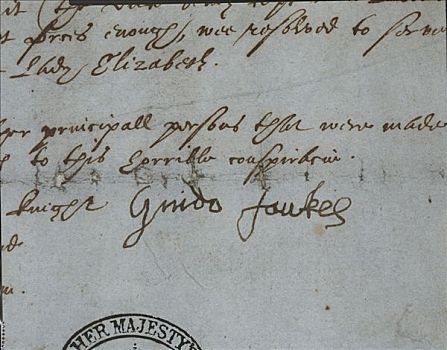 forces enough, wee resolved to serve
Lady Elizabeth.
principall persons that were made
to this horrible conspiracie.
knight Guido Faukes
HER MAJESTY